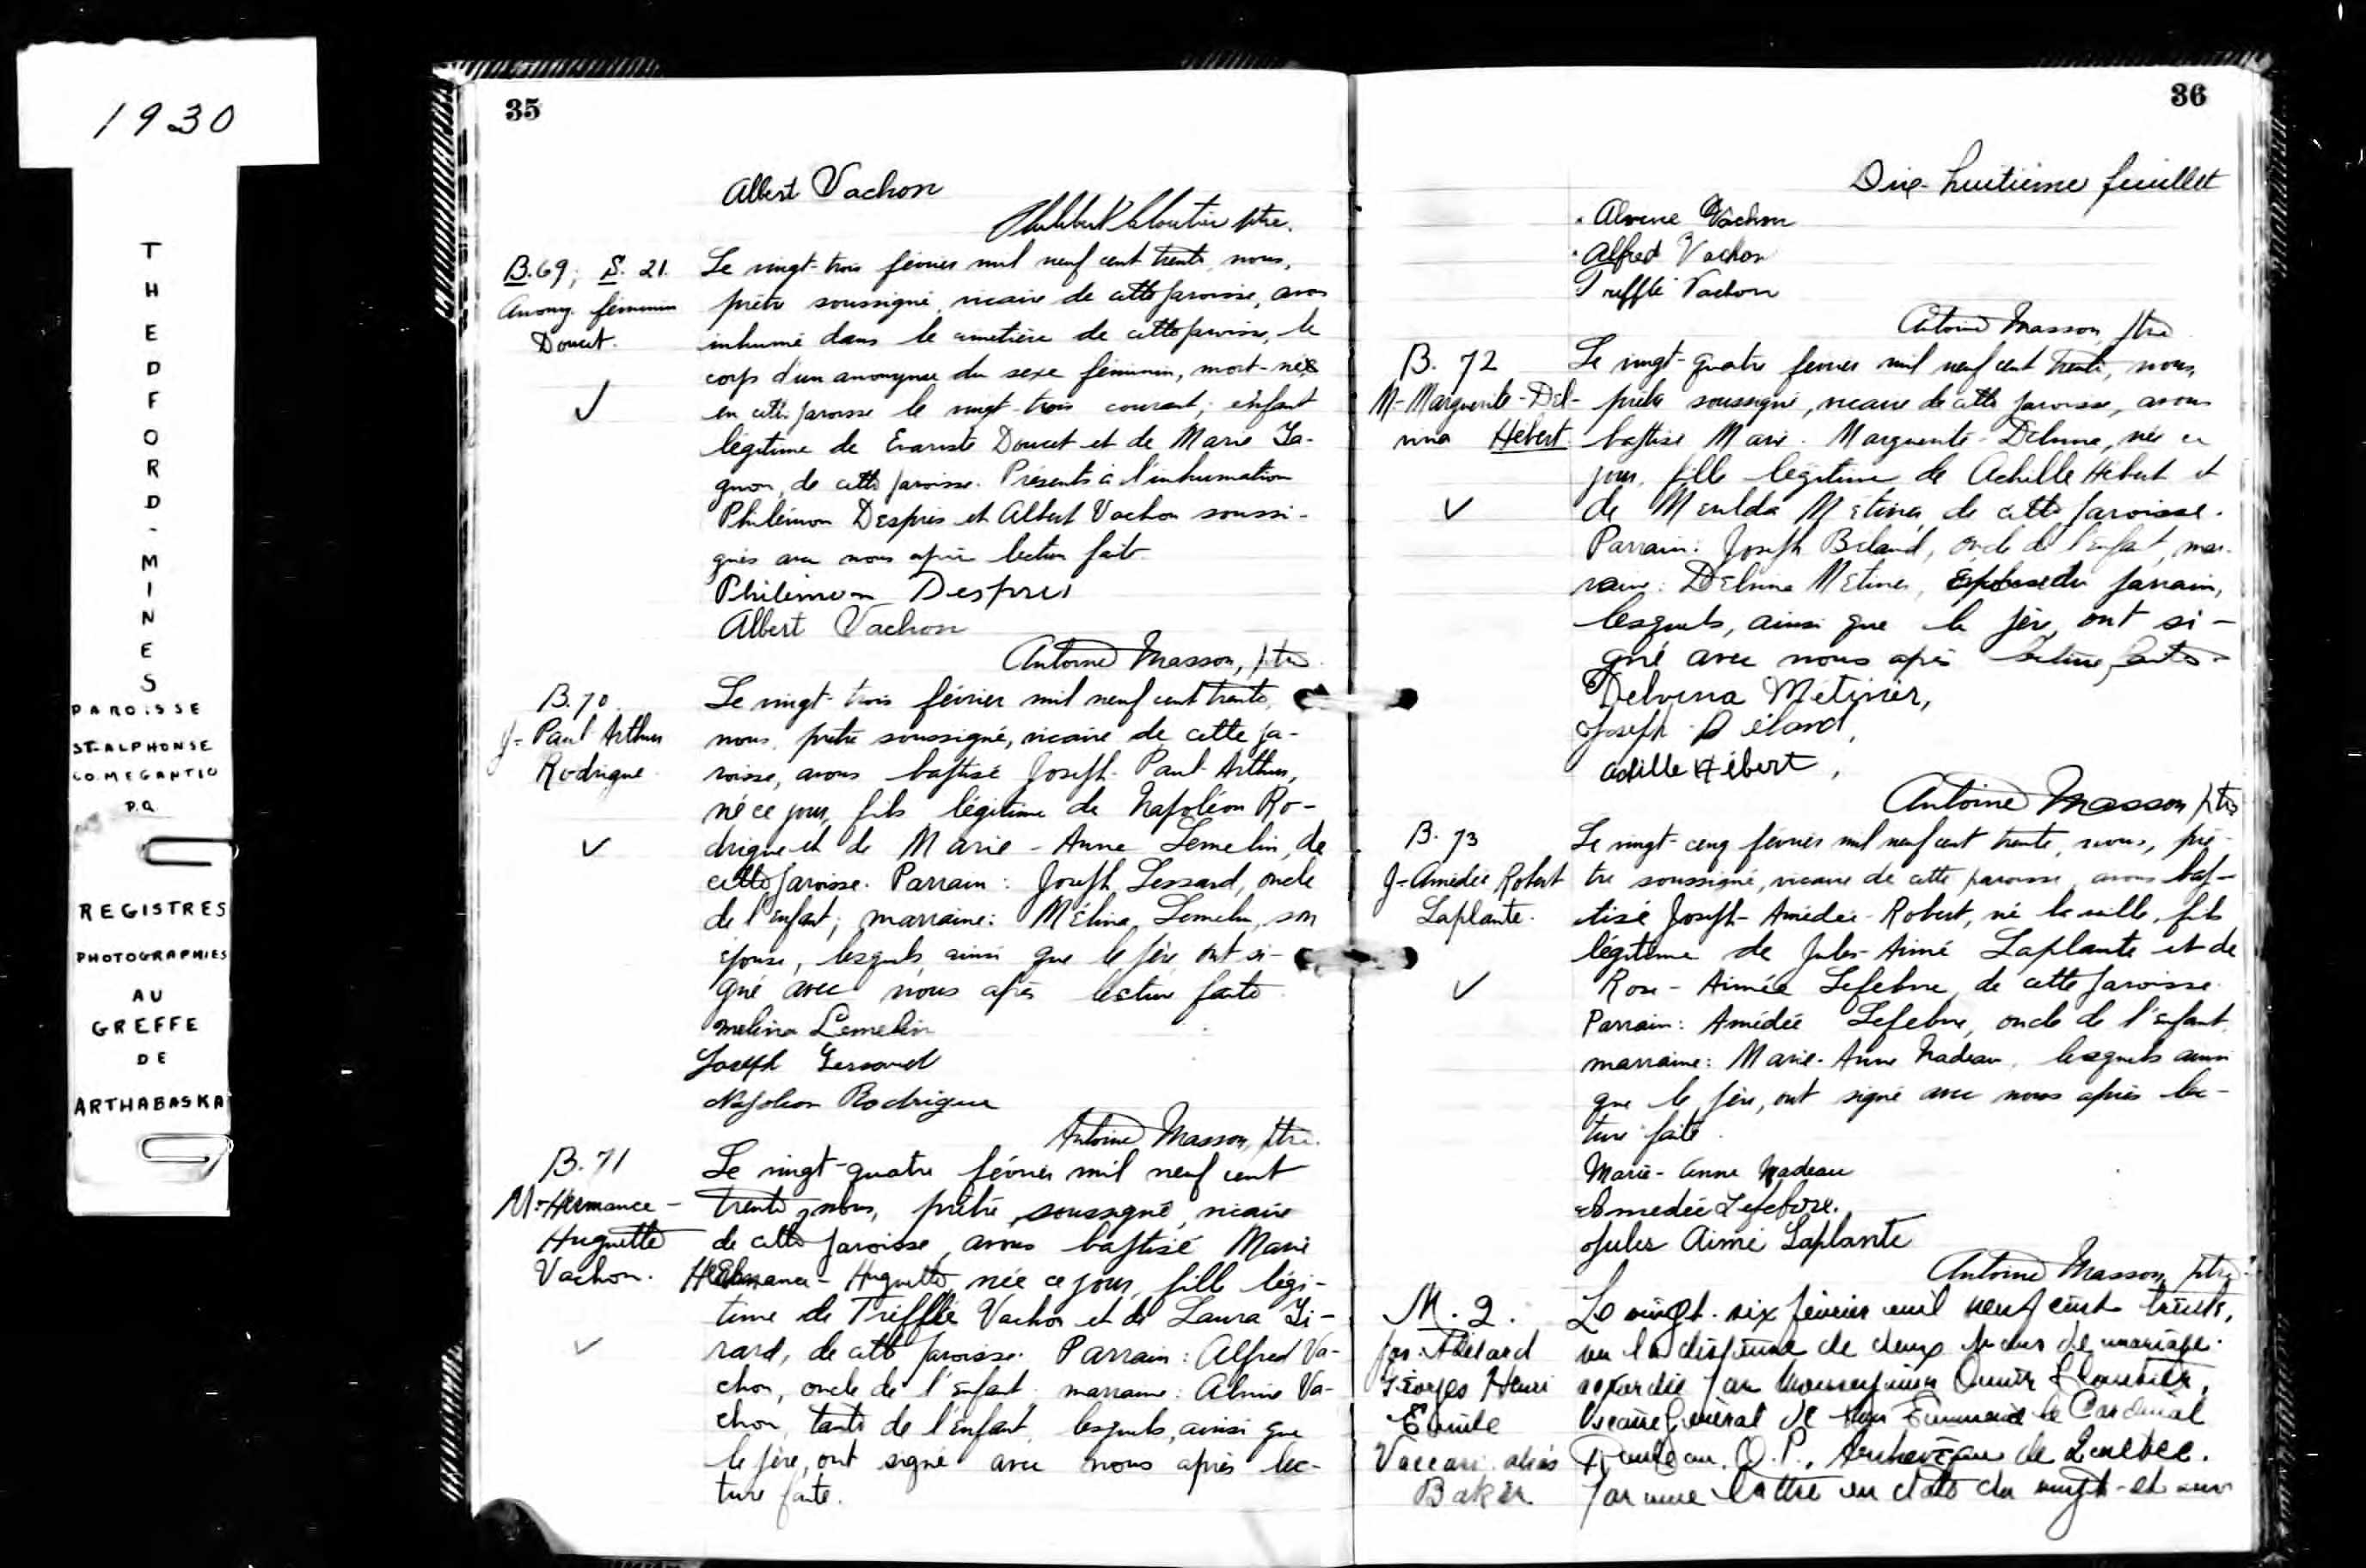 1930
THEDFORD-MINES
PAROISSE
ST-ALPHONSE
CO. MEGANTIC
P.Q.
REGISTRES
PHOTOGRAPHIES
AU
GREFFE
DE
ARTHABASKA
35
Albert Vachon
ptre.
B.69; S. 21.
Anony. féminin
Doucet.
Le vingt-trois février mil neuf cent trente, nous,
prêtre soussigné, vicaire de cette paroisse, avons
inhumé dans le cimetière de cette paroisse, le
corps d'un anonyme du sexe féminin, mort-née
en cette paroisse le vingt-trois courant; enfant
légitime de Evariste Doucet et de Marie Ga-
gnon, de cette paroisse. Présents à l'inhumation
Philémon Desprès et Albert Vachon soussi-
gnés avec nous après lecture faite.
Philémon Despres
Albert Vachon
Antoine Masson, ptre
B.70.
J-Paul Arthur
Rodrigue
Le vingt-trois février mil neuf cent trente,
nous, prêtre soussigné, vicaire de cette pa-
roisse, avons baptisé Joseph-Paul-Arthur,
né ce jour, fils légitime de Napoléon Ro-
drigue et de Marie-Anne Lemelin, de
cette paroisse. Parrain: Joseph Lessard, oncle
de l'enfant; marraine: Mélina Lemelin, son
épouse, lesquels, ainsi que le père, ont si-
gné avec nous après lecture faite.
Melina Lemelin
Joseph Lessard
Napoleon Rodrigue
Antoine Masson, ptre.
B.71
M-Hermance-
Huguette
Vachon.
Le vingt-quatre février mil neuf cent
trente, nous, prêtre soussigné, vicaire
de cette paroisse, avons baptisé Marie
Hermance-Huguette, née ce jour, fille légi-
time de Trefflé Vachon et de Laura Gi-
rard, de cette paroisse. Parrain: Alfred Va-
chon, oncle de l'enfant; marraine: Alvine Va-
chon, tante de l'enfant, lesquels, ainsi que
le père, ont signé avec nous après lec-
ture faite.
36
Dix-huitième feuillet
Alvine Vachon
Alfred Vachon
Trefflé Vachon
Antoine Masson, ptre
B. 72
M-Marguerite-Del-
vina Hébert.
Le vingt-quatre février mil neuf cent trente, nous,
prêtre soussigné, vicaire de cette paroisse, avons
baptisé Marie-Marguerite-Delvina, née ce
jour, fille légitime de Achille Hébert et
de Métivier, de cette paroisse.
Parrain: Joseph Béland, oncle de l'enfant, mar-
raine: Delvina Métivier, épouse du parrain,
lesquels, ainsi que le père, ont si-
gné avec nous après lecture faite.
Delvina Métivier,
Joseph Béland,
Achille Hébert,
Antoine Masson, ptre
B. 73
J-Amédée Robert
Laplante.
Le vingt-cinq février mil neuf cent trente, nous, prê-
tre soussigné, vicaire de cette paroisse, avons bap-
tisé Joseph-Amédée-Robert, né la veille, fils
légitime de Jules-Aimé Laplante et de
Rose-Aimée Lefebvre, de cette paroisse.
Parrain: Amédée Lefebvre, oncle de l'enfant,
marraine: Marie-Anne Nadeau, lesquels ainsi
que le père, ont signé avec nous après lec-
ture faite.
Marie-Anne Nadeau
Amedée Lefebvre.
Jules Aimé Laplante
Antoine Masson, ptre
M. 2.
Jos. Adélard
Georges Henri
Emile
Vaccari alias
Baker
Le vingt-six février mil neuf cent trente,
vu la dispense de deux bans de mariage
accordée par Monseigneur Omer Cloutier,
Vicaire Général de Son Eminence le Cardinal
Rouleau, O.P., Archevêque de Québec.
par une lettre en date du vingt-et-un